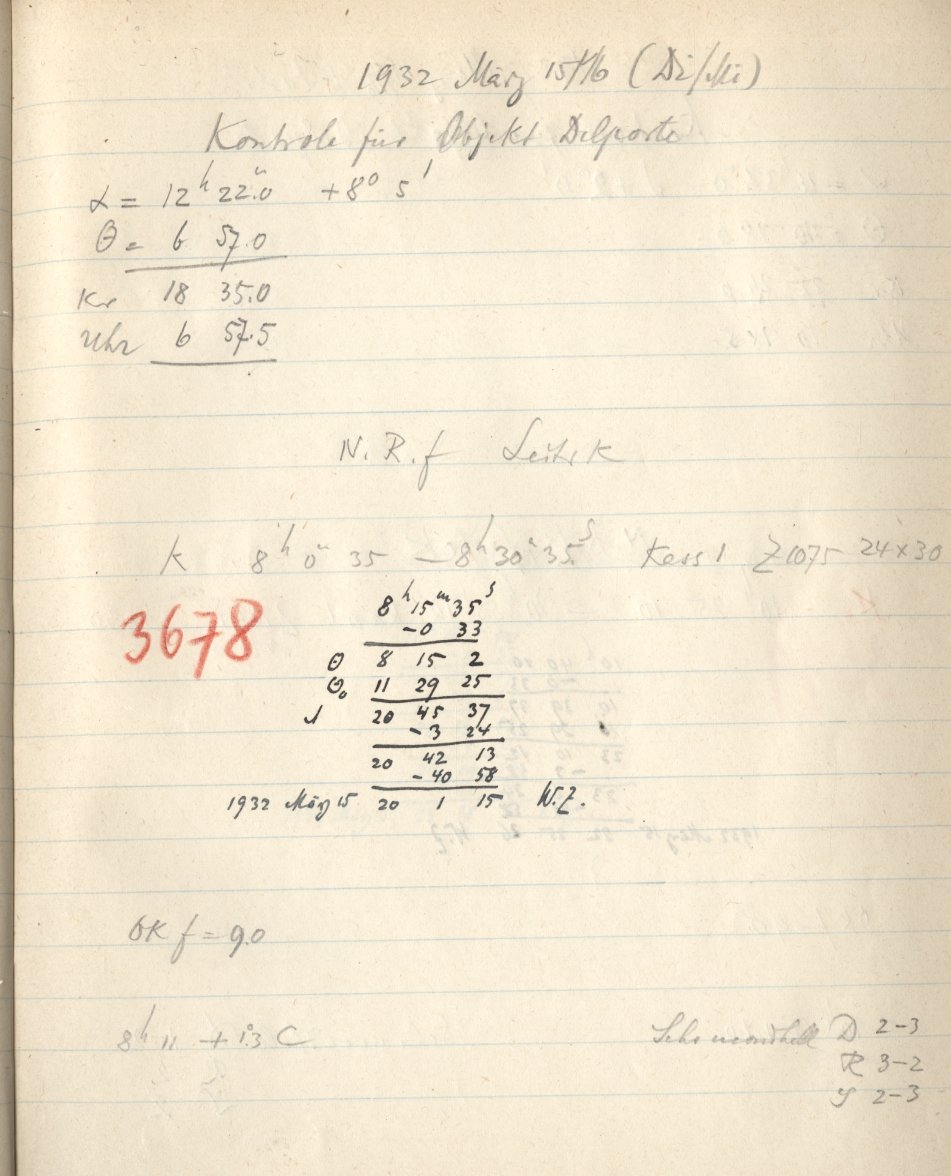 1932 März 15/16 (Di/Mi)
Kontrole für Objekt Delporte
α = 12ʰ 22ᵐ.0 +8° 5'
θ = 6 57.0
Kr 18 35.0
Uhr 6 57.5
N. R. f
K 8ʰ 0ᵐ 35 – 8ʰ 30ᵐ 35ˢ Kass 1 Z 1075 24×30
3678
8ʰ 15ᵐ 35ˢ
-0 33
θ 8 15 2
θ₀ 11 29 25
20 45 37
-3 24
20 42 13
-40 58
1932 März 15 20 1 15 W.Z.
OK f = 9.0
8ʰ 11 + 1.3 C Sehr mondhell D 2-3
R 3-2
S 2-3